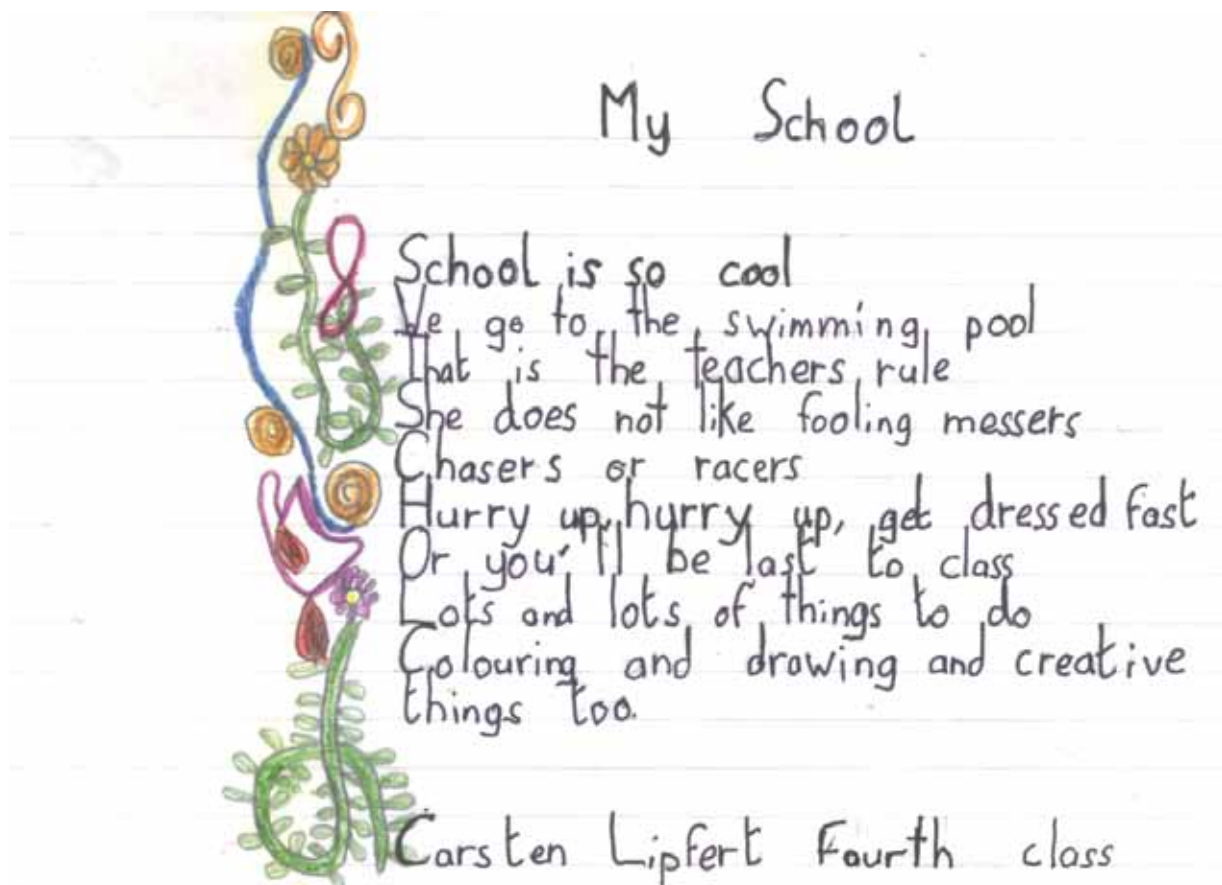 My School
School is so cool
We go to the swimming pool
That is the teachers rule
She does not like fooling messers
Chasers or racers
Hurry up, hurry up, get dressed fast
Or you'll be last to class
Lots and lots of things to do
Colouring and drawing and creative
things too.
Carsten Lipfert Fourth class